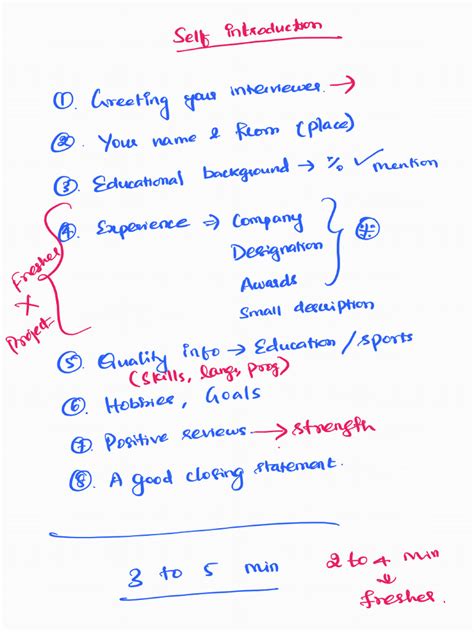 Self introduction
①. Greeting your interviewer. →
②. Your name & from (place)
③. Educational background → % ✓ mention
④. Experience ⇒ Company
Designation
Awards
Small description
Fresher
X
Project
⑤. Quality info → Education / sports
(skills, lang, prog)
⑥. Hobbies, Goals
⑦. Positive reviews → strength
⑧. A good closing statement.
3 to 5 min
2 to 4 min
↓
fresher.